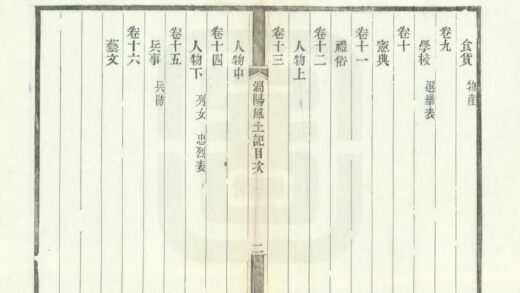 食貨 物産
卷九
學校 選舉表
卷十
憲典
卷十一
禮俗
卷十二
人物上
卷十三
渦陽風土記目次
二
人物中
卷十四
人物下 列女 忠烈表
卷十五
兵事 兵防
卷十六
藝文